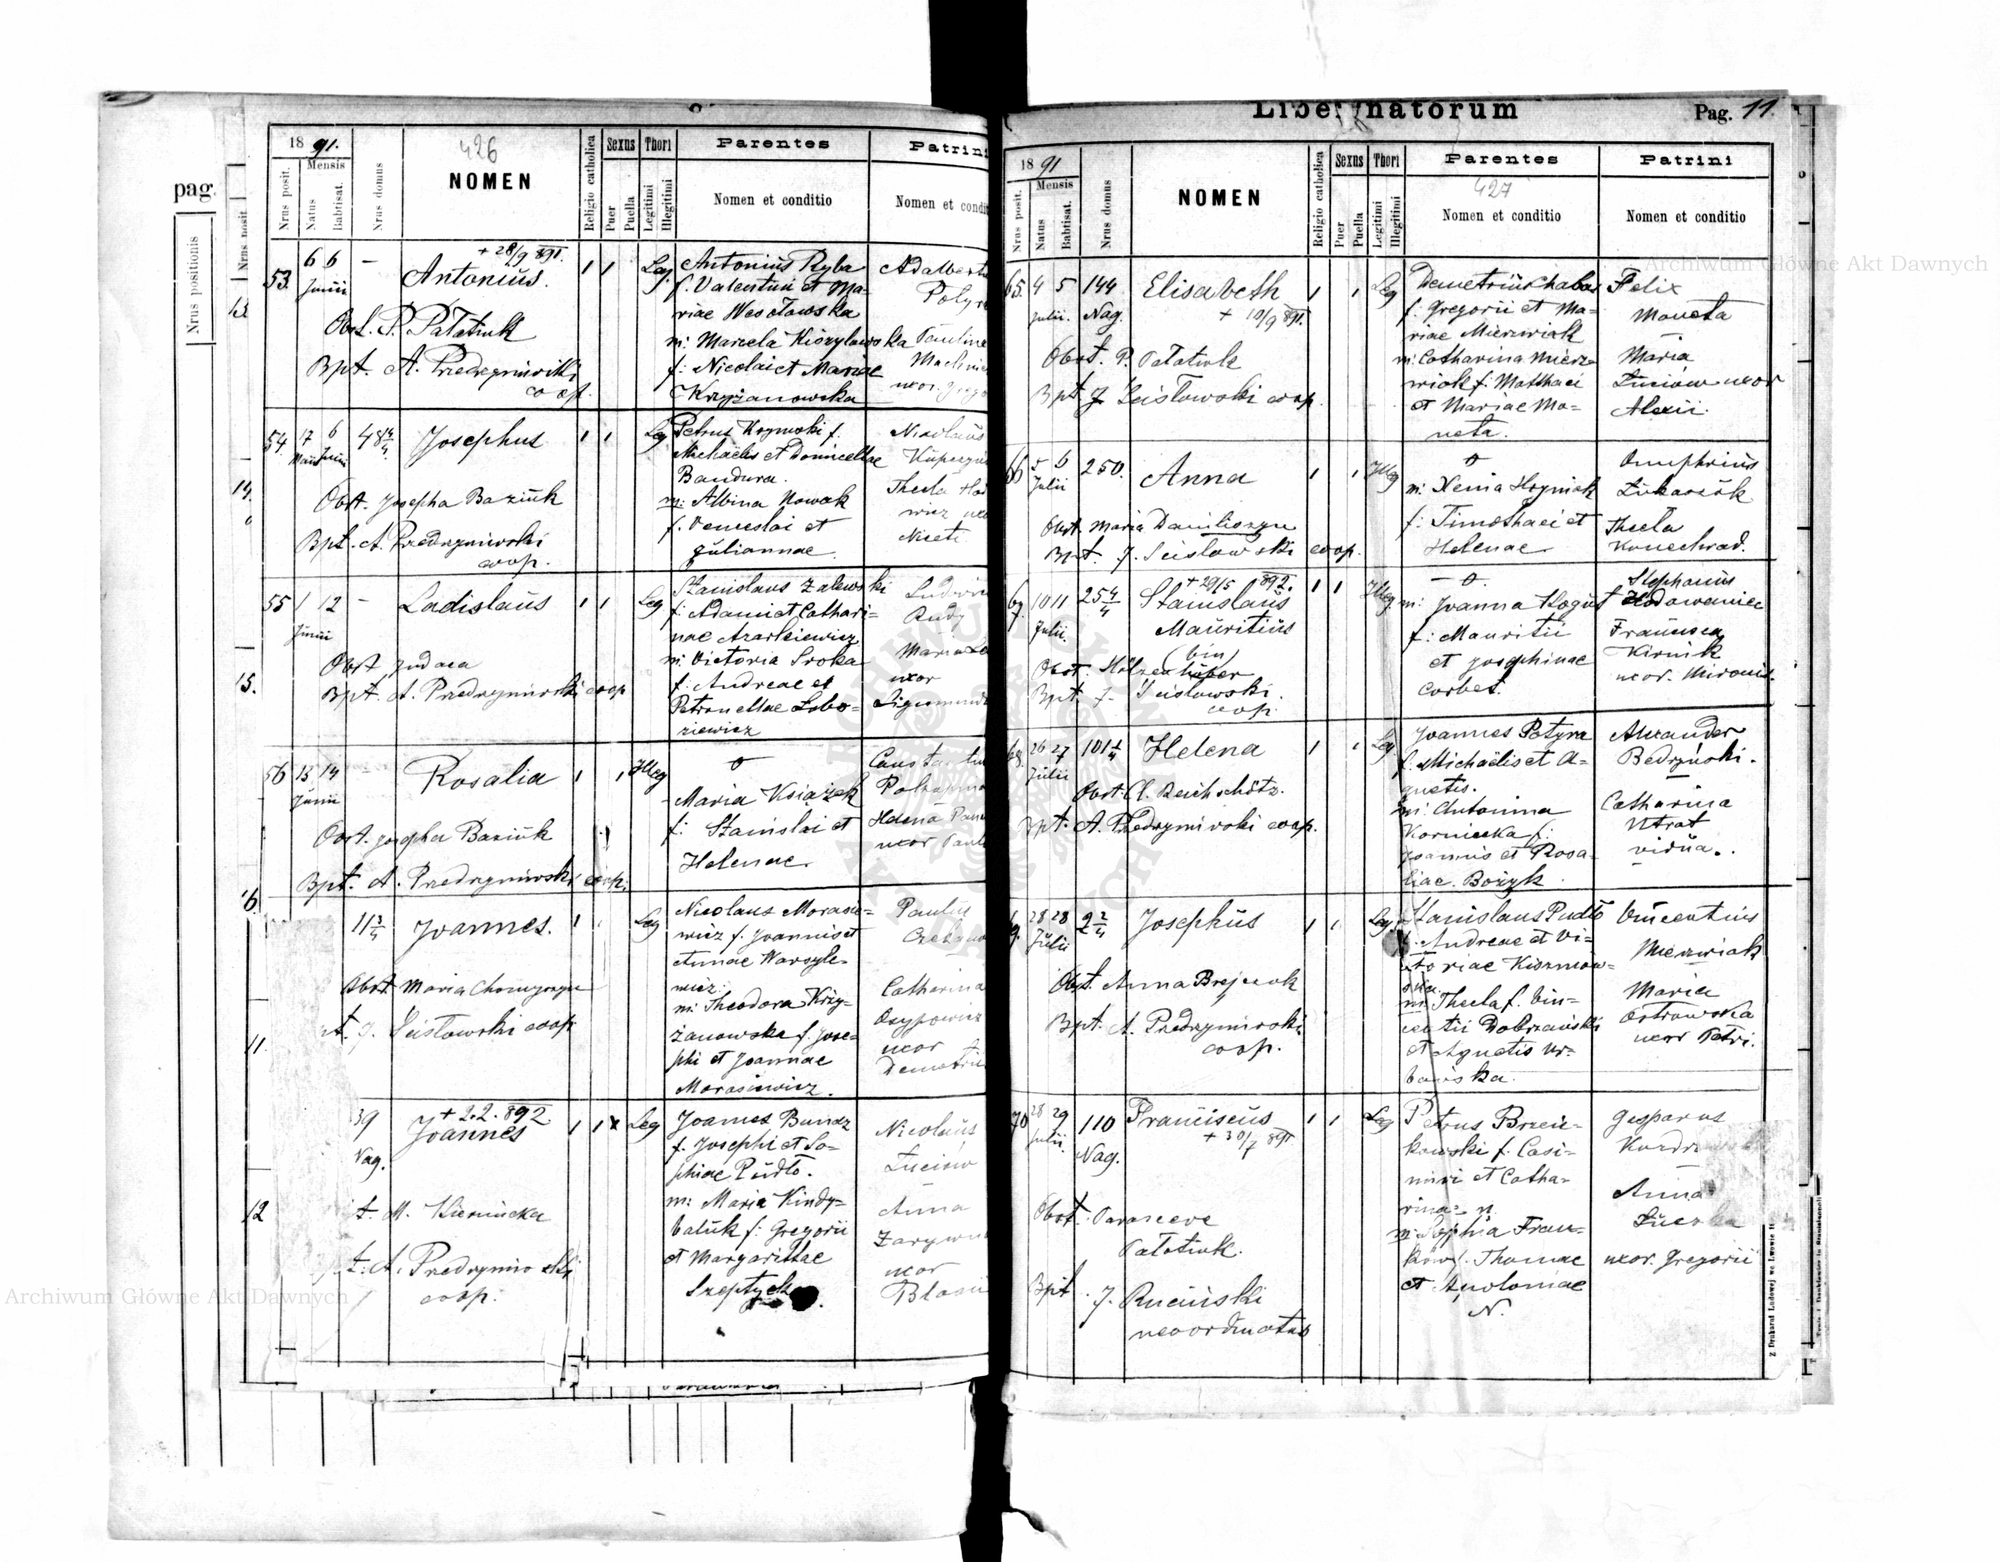 Liber natorum
Pag. 11.
pag.
Nrus positionis
Nrus posit.
13.
14.
15.
16.
11.
12
1891.
426
Nrus posit.
Mensis
Natus
Babtisat.
Nrus domus
NOMEN
Religio catholica
Sexus
Puer
Puella
Thori
Legitimi
Illegitimi
Parentes
Nomen et conditio
Patrini
Nomen et condi
53.
6 6
Junii
—
+ 28/9 891.
Antonius.
Obst. P. Patatiuk
Bpt. A. Przedrzymirski
coop.
Leg
Antonius Ryba
f. Valentini et Ma-
riae Wesołowska
m: Marcela Kiszylowska
f: Nicolai et Mariae
Krzyżanowska
Adalbertu
Paulina
uxor. Grego
54.
17 6
Maii Junii
48 14/4
Josephus
Obst. Josepha Baziuk
Bpt. A. Przedrzymirski
coop.
Leg
Petrus Krynski f.
Michaëlis et Domicellae
Bandura.
m: Albina Nowak
f. Venceslai et
Juliannae
Nicolaus
Thecla
Niceti
55
1 12
Junii
—
Ladislaus
Obst. Judaea
Bpt. A. Przedrzymirski coop
Leg
Stanislaus Zalewski
f: Adami et Cathari-
nae Azarkiewicz
m: Victoria Sroka
f: Andreae et
Petronellae Lobo-
ziewicz
Rudy
Maria
uxor
Sigismund
56
13 14
Junii
—
Rosalia
Obst. Josepha Baziuk
Bpt. A. Przedrzymirski coop.
Illeg
Maria Książek
f: Stanislai et
Helenae
Constantin
Helena
uxor Pauli
11 3/4
Joannes.
Obst. Maria
J. Seisłowski coop
Leg
Nicolaus Morasie-
wicz f. Joannis et
Annae Warsyle-
wicz.
m: Theodora Krzy-
żanowska f. Jose-
phi et Joannae
Morasiewicz.
Paulus
Catharina
Osypowicz
uxor
Demetrii
39
Nag.
+ 2.2. 892
Joannes
t. M. Kiernicka
t: A. Przedrzymirski
coop.
Leg
Joannes Bundz
f. Josephi et So-
phiae Pudło.
m: Maria Kindy-
baluk f: Gregorii
et Margarithae
Szeptyck
Nicolaus
Łuciów
Anna
uxor
Blasii
1891
427
Nrus posit.
Mensis
Natus
Babtisat.
Nrus domus
NOMEN
Religio catholica
Sexus
Puer
Puella
Thori
Legitimi
Illegitimi
Parentes
Nomen et conditio
Patrini
Nomen et conditio
65.
4 5
Julii.
144
Nag.
Elisabeth
+ 10/9 891.
Obst. P. Patatiuk
Bpt. J. Seisłowski coop.
Leg
Demetrius Chabas
f. Gregorii et Ma-
riae Mierzwiak
m: Catharina Mierz-
wiak f: Matthaei
et Mariae Mo-
neta.
Felix
Moneta
—
Maria
Łuciów uxor
Alexii.
66
5 6
Julii
250.
Anna
Obst. Maria Daniliszyn
Bpt. J. Seisłowski coop.
Illeg
m: Xenia Hryniak
f: Timothaei et
Helenae
Onuphrius
Łukasiuk
Thecla
Konechrad.
67
10 11
Julii.
25 4/4
+ 29/5 892.
Stanislaus
Mauritius
(bin)
Obst. Holzenhuber
Bpt. J. Seisłowski.
coop.
Illeg
m: Joanna Kogut
f: Mauritii
et Josephinae
Corbet.
Stephanus
Hodowaniec
Francisca
Kirnik
uxor. Mironis.
68.
26 27
Julii
101 1/4
Helena
Obst. Cl. Reichschötz.
Bpt. A. Przedrzymirski coop.
Leg.
Joannes Petyra
f. Michaëlis et A-
gnetis.
m: Antonina
Kornicka f:
Joannis et Rosa-
liae. Bożyk.
Alexander
Bedryński.
Catharina
Utrat
vidua.
69.
28 28
Julii
2 2/4
Josephus
Obst. Anna Brejczuk
Bpt. A. Przedrzymirski
coop.
Leg
Stanislaus Pudło
f. Andreae et Vi-
ctoriae Kiszmow-
ska
m: Thecla f. Vin-
centii Dobrzański
et Agnetis Ur-
bańska.
Vincentius
Mierzwiak
Maria
Ostrowska
uxor Petri.
70
28 29
Julii.
110
Nag.
Franciscus
+ 30/7 891.
Obst. Parasceve
Patatiuk.
Bpt. J. Ruciński
neoordinatus
Leg
Petrus Brzeci-
kowski f. Casi-
miri et Catha-
rinae N.
m: Sophia Fran-
ków f. Thomae
et Apoloniae
N.
Gasparus
Anna
Łuczka
uxor. Gregorii
Z Drukarni Ludowej we Lwowie
Archiwum Główne Akt Dawnych
Archiwum Główne Akt Dawnych